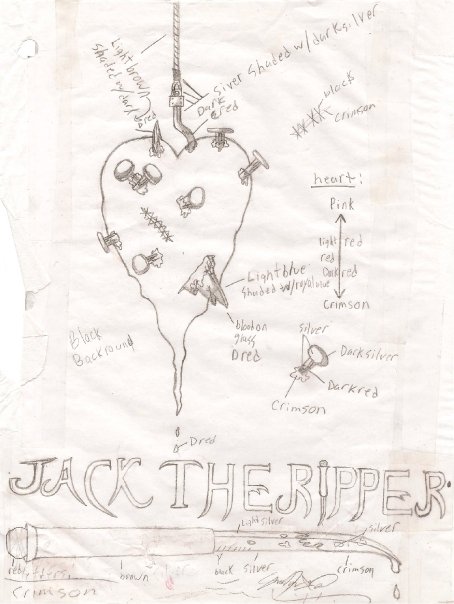 Light brown
shaded w/ dark
Silver Shaded w/ dark silver
Dark
red
red
black
Crimson
heart:
Pink
light red
red
Dark red
Crimson
Light blue
Shaded w/ royal blue
blood on
glass
D red
Black
Backround
silver
Dark silver
Dark red
Crimson
D red
JACK THE RIPPER
Light silver
silver
red
brown
black
silver
crimson
letters:
Crimson